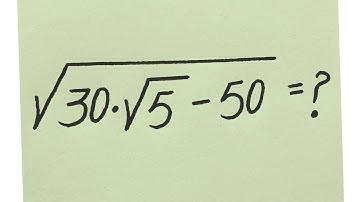 √(30·√5 - 50) = ?